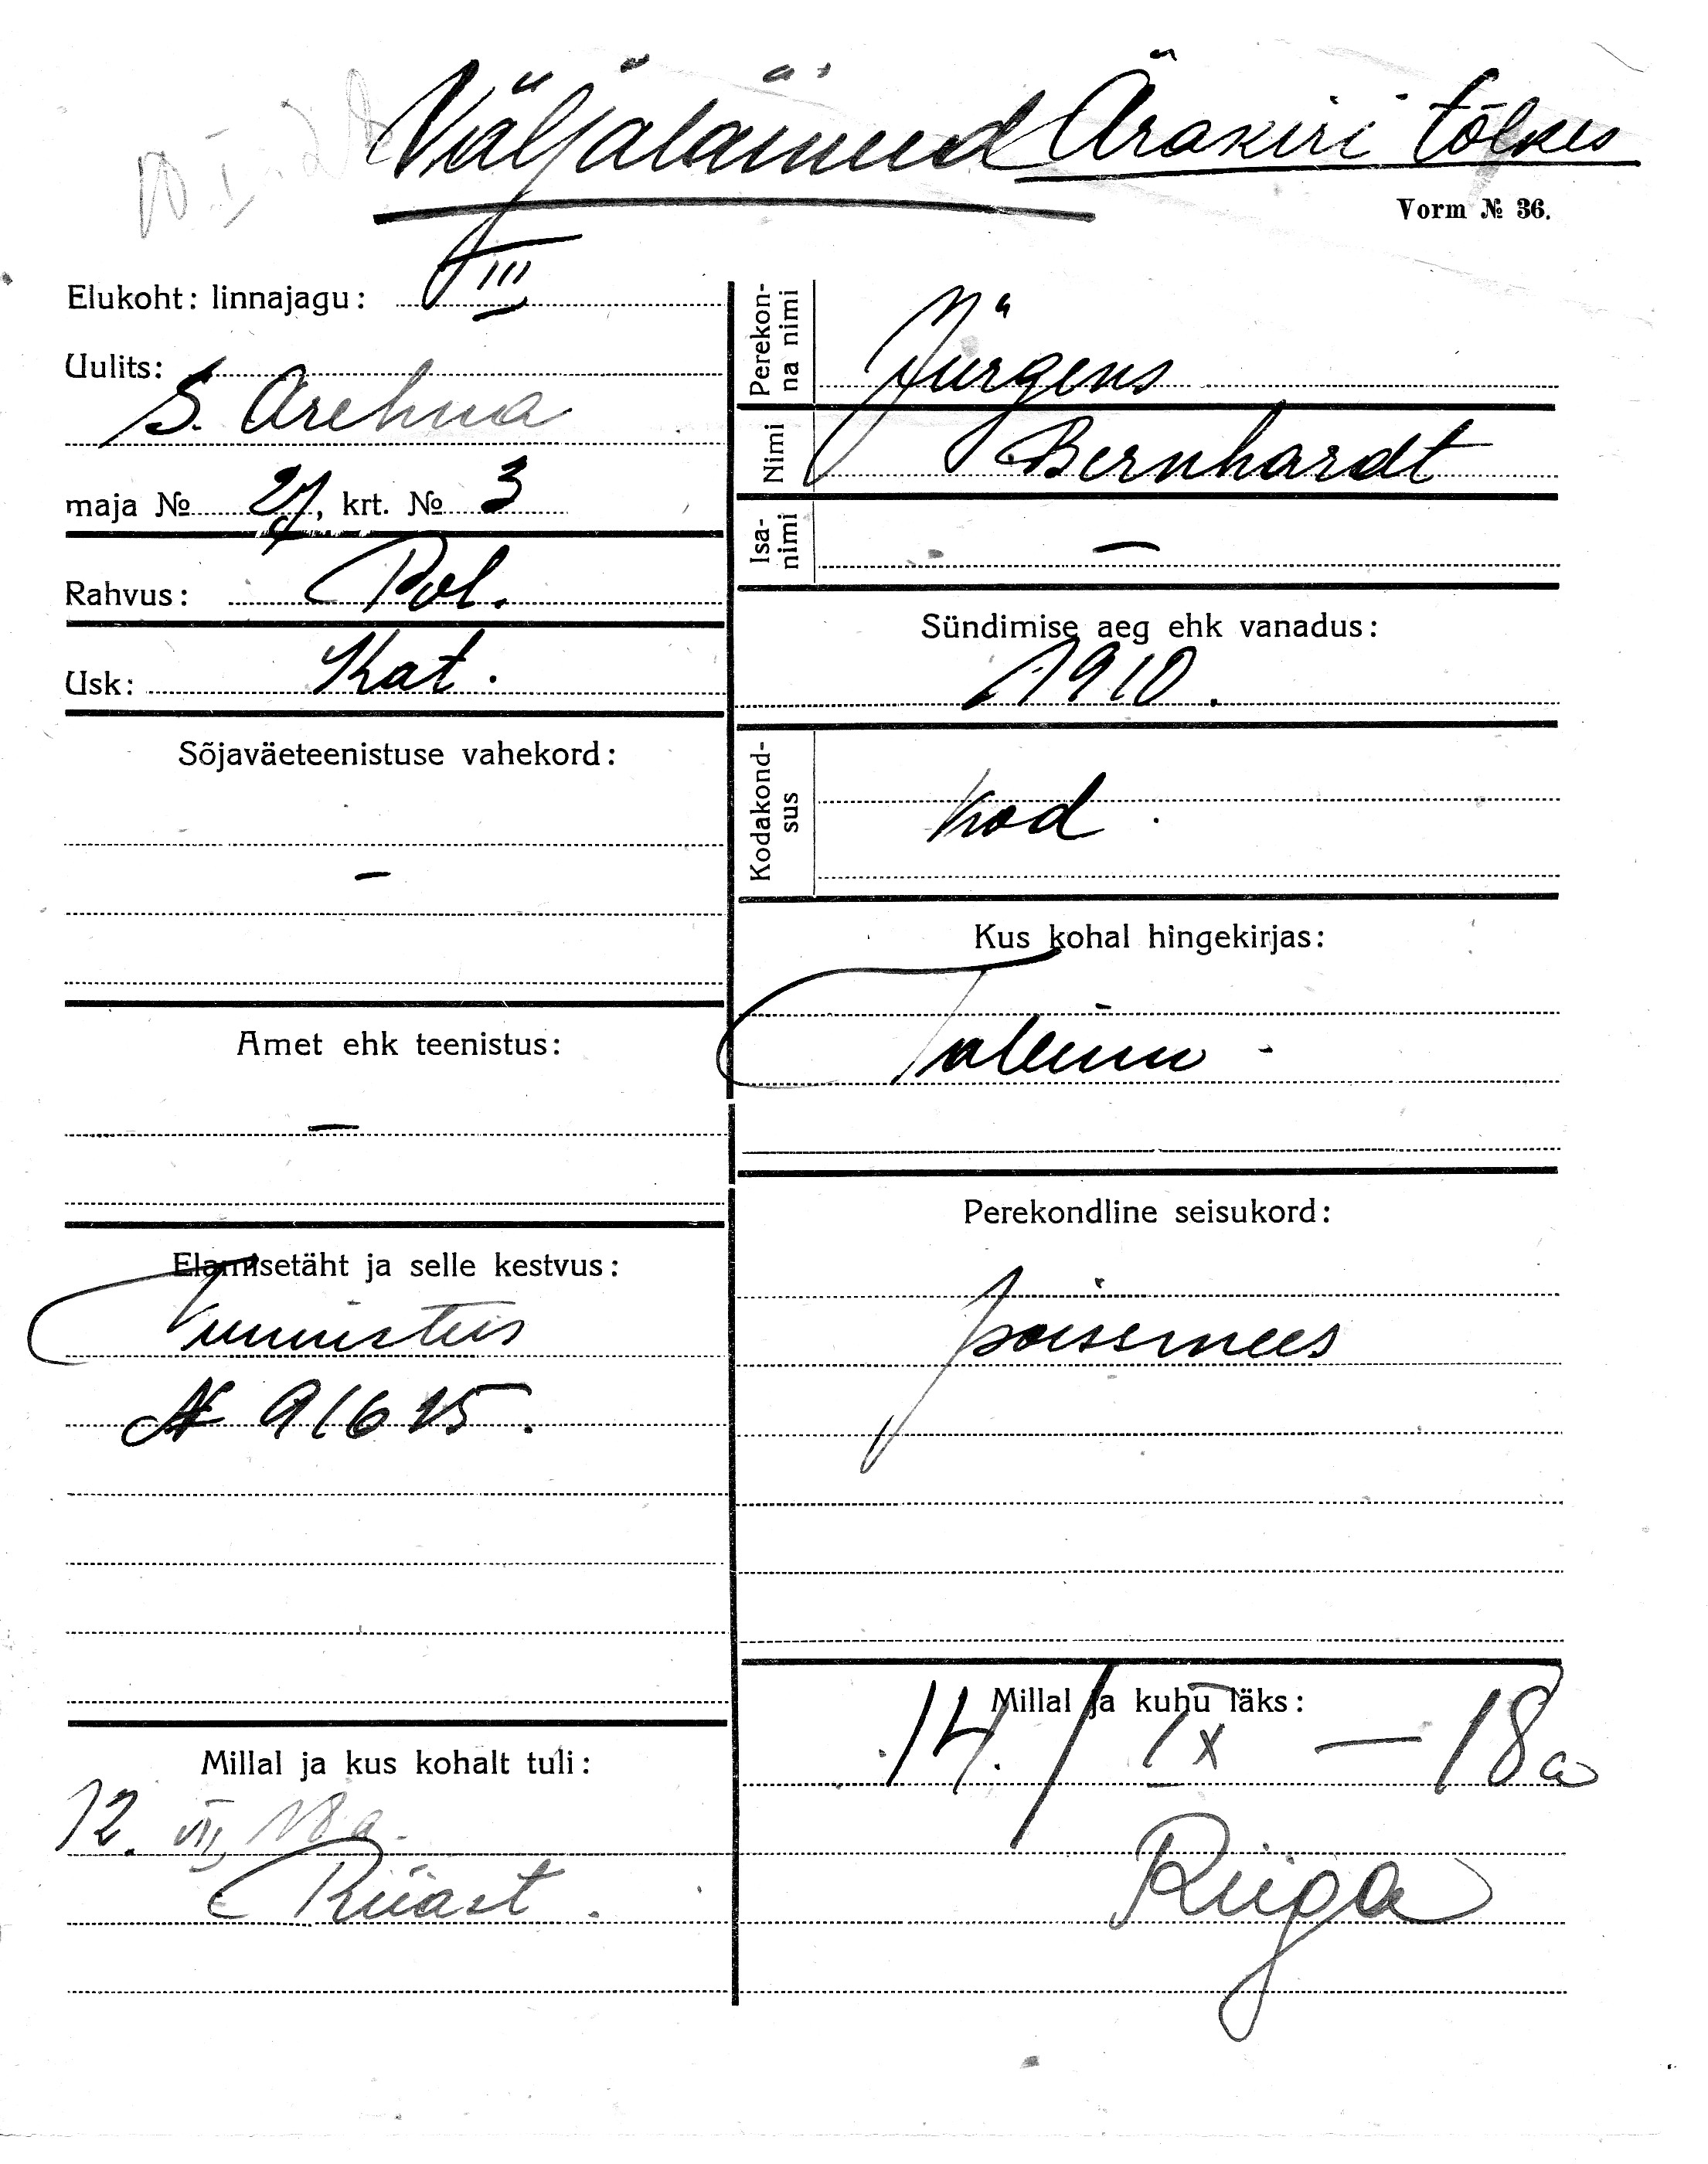 Väljaläinud Ärakiri tõlkes
Vorm № 36.
Elukoht: linnajagu: III
Uulits:
S. Arehna
maja № 27, krt. № 3
Rahvus: Pol.
Usk: Kat.
Sõjaväeteenistuse vahekord:
–
Amet ehk teenistus:
–
Elamisetäht ja selle kestvus:
Tunnistus
№ 91615.
Millal ja kus kohalt tuli:
12. VII 18 a.
Riiast.
Perekon-
na nimi Jürgens
Nimi Bernhardt
Isa-
nimi –
Sündimise aeg ehk vanadus:
1910.
Kodakond-
sus Kod.
Kus kohal hingekirjas:
Tallinn -
Perekondline seisukord:
poissmees
Millal ja kuhu läks:
14. / IX – 18 a
Riiga